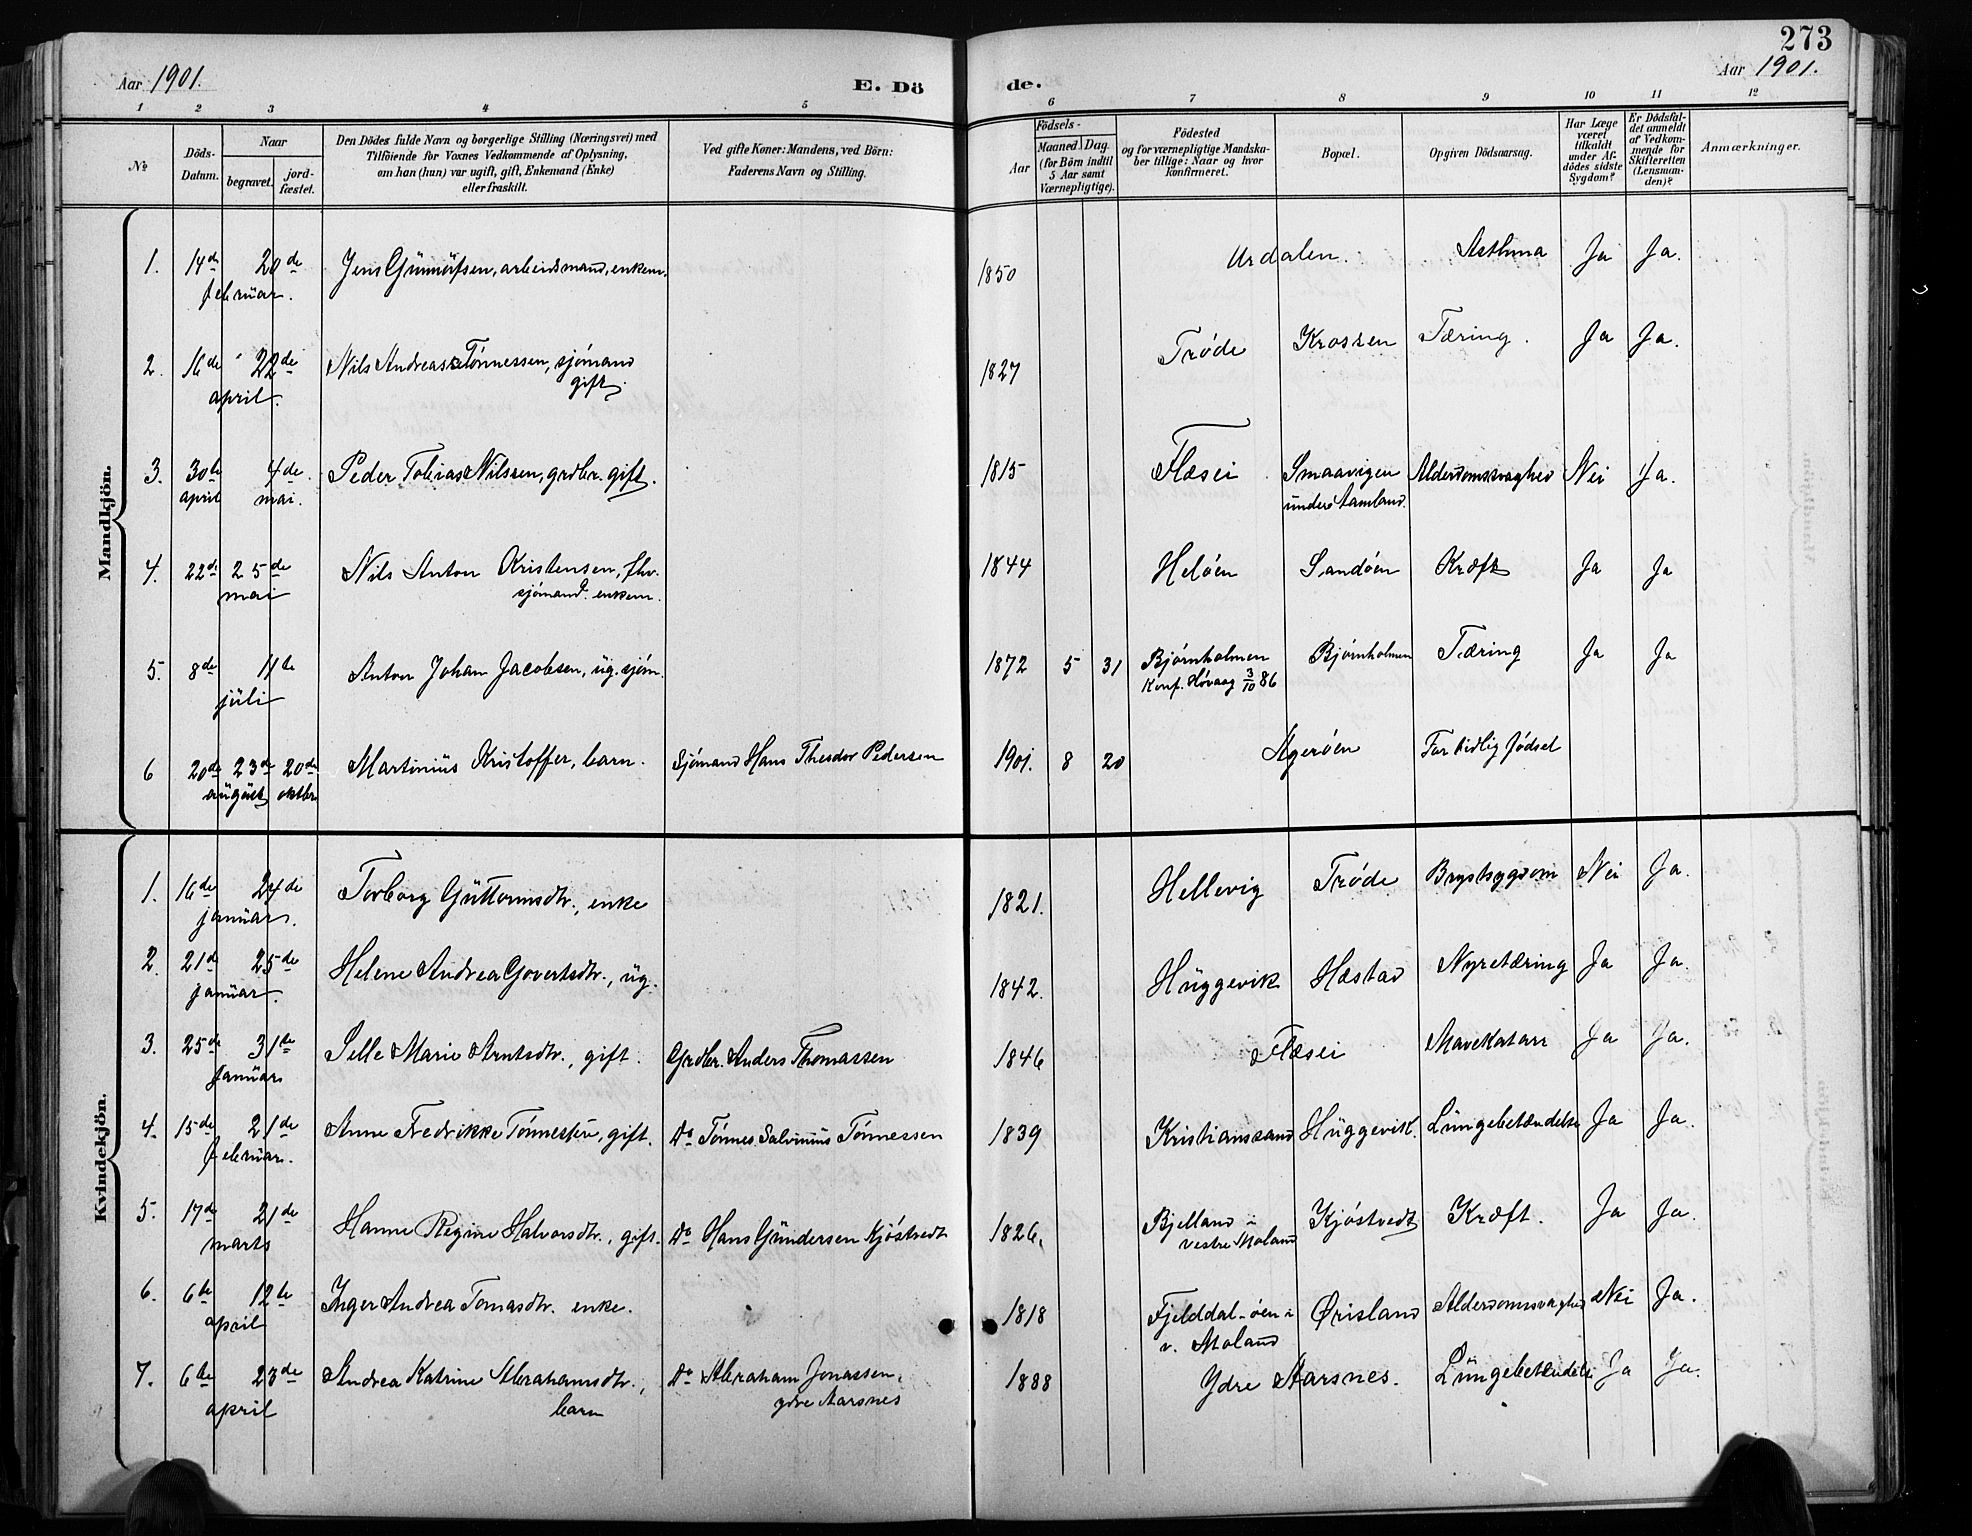 273
Aar 1901.
E. Dö de.
Aar 1901.
1 2 3 4 5 6 7 8 9 10 11 12
№
Döds-Datum.
Naar
begravet.
jord-fæstet.
Den Dödes fulde Navn og borgerlige Stilling (Næringsvei) med
Tilföiende for Voxnes Vedkommende af Oplysning,
om han (hun) var ugift, gift, Enkemand (Enke)
eller fraskilt.
Ved gifte Koner: Mandens, ved Börn:
Faderens Navn og Stilling.
Födsels-
Aar
Maaned Dag
(for Börn indtil
5 Aar samt
Værnepligtige).
Födested
og for værnepligtige Mandska-
ber tillige: Naar og hvor
konfirmeret.
Bopæl.
Opgiven Dödsaarsag.
Har Læge
været
tilkaldt
under Af-
dödes sidste
Sygdom?
Er Dödsfal-
det anmeldt
af Vedkom-
mende for
Skifteretten
(Lensman-
den)?
Anmærkninger.
Mandkjön.
1. 14de 20de Jens Gunnufsen, arbeidsmand, enkem. 1850 Urdalen. Asthma Ja Ja.
februar.
2. 16de 22de Nils Andreas Tønnessen, sjømand 1827 Trøde Krossen Tæring. Ja Ja.
april. gift.
3. 30te 4de Peder Tobias Nilssen, grdbr. gift. 1815 Flæsei Smaavigen Alderdomssvaghed Nei Ja.
april mai. under Aamland.
4. 22de 25de Nils Anton Kristensen, fhv. 1844 Heløen Sandøen Kræft Ja Ja
mai sjømand. enkem.
5. 8de 11te Anton Johan Jacobsen, ug. sjøm. 1872 5 31 Bjørnholmen Bjørnholmen Tæring Ja Ja
juli Konf. Høvaag 3/10 86
6 20de 23de 20de Martinius Kristoffer, barn. Sjømand Hans Theodor Pedersen 1901. 8 20 Agerøen For tidlig fødsel
august oktbr.
Kvindekjön.
1. 16de 24de Torborg Guttormsdtr., enke 1821. Hellevig Trøde Brystsygdom Nei Ja.
januar.
2. 21de 25de Helene Andrea Govertsdtr., ug. 1842. Huggevik Hæstad Nyretæring Ja Ja.
januar.
3. 25de 31te Sille Marie Arntsdtr., gift. Grdbr. Anders Thomassen 1846 Flæsei Mavekatarr Ja Ja.
januar
4. 15de 21de Anne Fredrikke Tønnesen, gift. Do Tønnes Salvinius Tønnessen 1839 Kristianssand Huggevik. Lungebetændelse Ja Ja.
februar.
5. 17de 21de Hanne Regine Halvorsdtr., gift. Do Hans Gundersen Kjøstvedt 1826. Bjelland i Kjøstvedt Kræft. Ja Ja.
marts vestre Moland
6. 6te 12te Inger Andrea Tomasdtr. enke. 1818 Fjelddal-øen i Ørisland Alderdomssvaghed Nei Ja.
april v. Moland
7. 6te 23de Andrea Katrine Abrahamsdtr., Do Abraham Jonassen, 1888 Ydre Aarsnes. Lungebetændelse Ja Ja.
april barn ydre Aarsnes